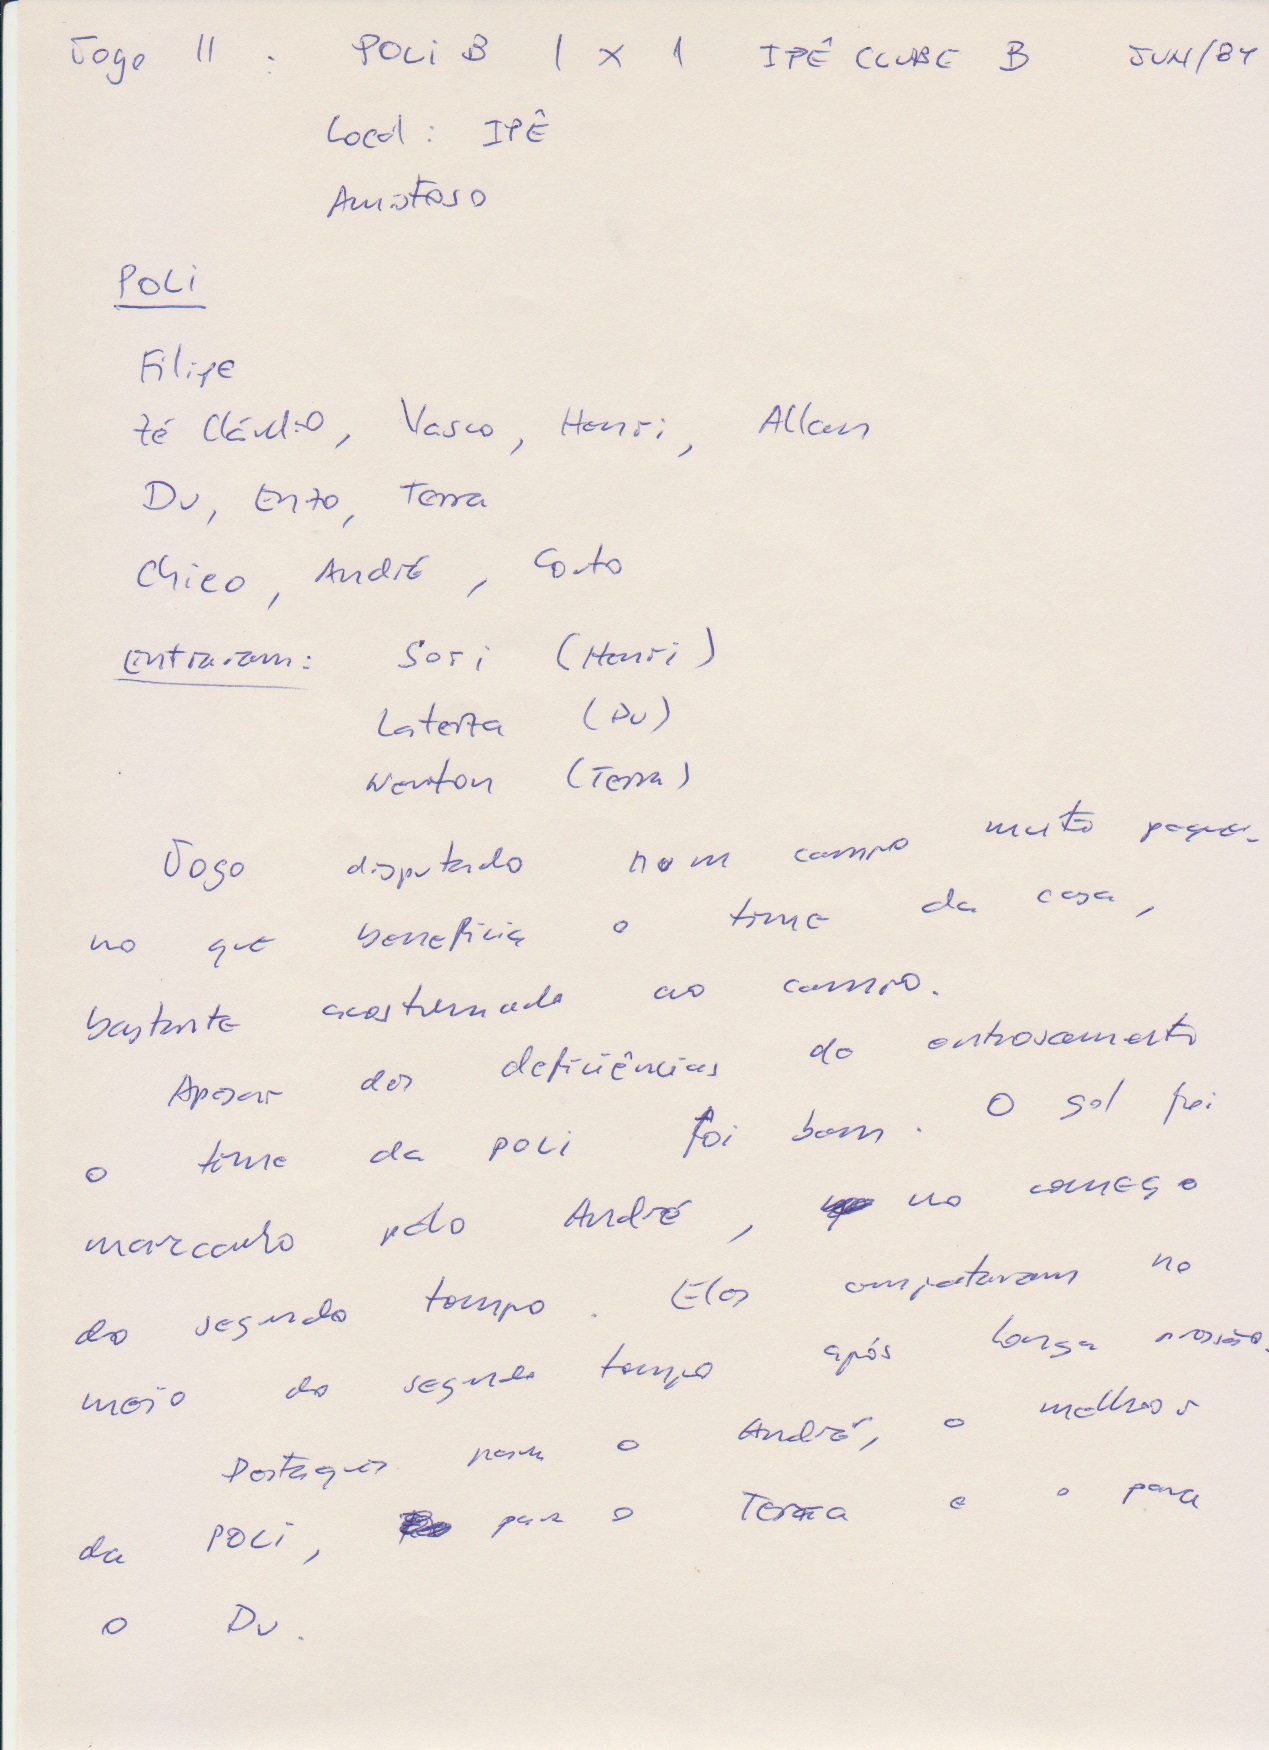 Jogo 11 : POLI B 1 x 1 IPÊ CLUBE B JUN/84
Local : IPÊ
Amistoso
POLI
Filipe
Zé Cláudio, Vasco, Henri, Allan
Du, Enzo, Terra
Chico, André, Couto
Entraram: Sori (Henri)
Laterza (Du)
Newton (Terra)
Jogo disputado num campo muito peque-
no que beneficia o time da casa,
bastante acostumado ao campo.
Apesar das deficiências de entrosamento
o time da POLI foi bom. O gol foi
marcado pelo André, no começo
do segundo tempo. Eles empataram no
meio do segundo tempo após longa pressão.
Destaques para o André, o melhor
da POLI, para o Terra e o para
o Du.